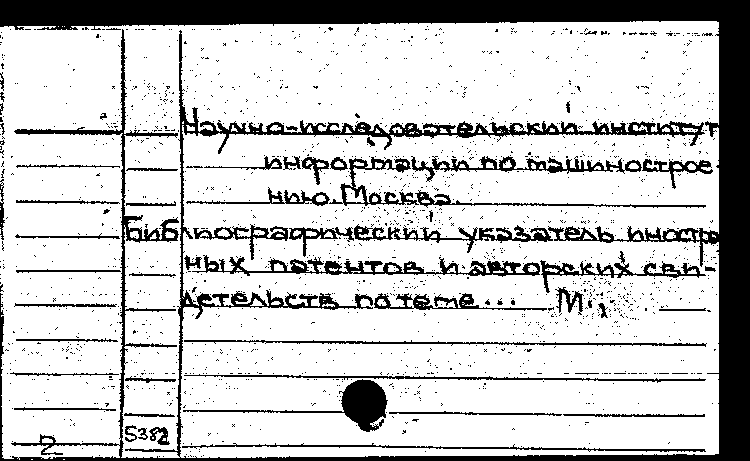 Научно-исследовательский институт
информации по машинострое-
нию. Москва.
Библиографический указатель иностран-
ных патентов и авторских сви-
детельств по теме... М.,
S382
2